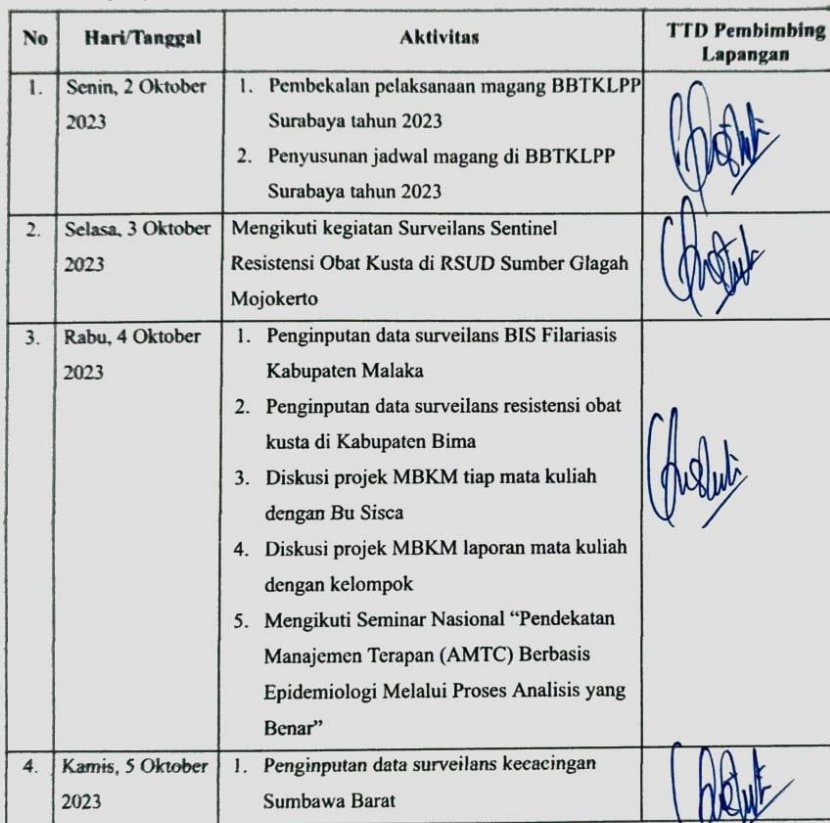 No Hari/Tanggal Aktivitas TTD Pembimbing
Lapangan
1. Senin, 2 Oktober
2023
1. Pembekalan pelaksanaan magang BBTKLPP
Surabaya tahun 2023
2. Penyusunan jadwal magang di BBTKLPP
Surabaya tahun 2023
2. Selasa, 3 Oktober
2023
Mengikuti kegiatan Surveilans Sentinel
Resistensi Obat Kusta di RSUD Sumber Glagah
Mojokerto
3. Rabu, 4 Oktober
2023
1. Penginputan data surveilans BIS Filariasis
Kabupaten Malaka
2. Penginputan data surveilans resistensi obat
kusta di Kabupaten Bima
3. Diskusi projek MBKM tiap mata kuliah
dengan Bu Sisca
4. Diskusi projek MBKM laporan mata kuliah
dengan kelompok
5. Mengikuti Seminar Nasional “Pendekatan
Manajemen Terapan (AMTC) Berbasis
Epidemiologi Melalui Proses Analisis yang
Benar”
4. Kamis, 5 Oktober
2023
1. Penginputan data surveilans kecacingan
Sumbawa Barat